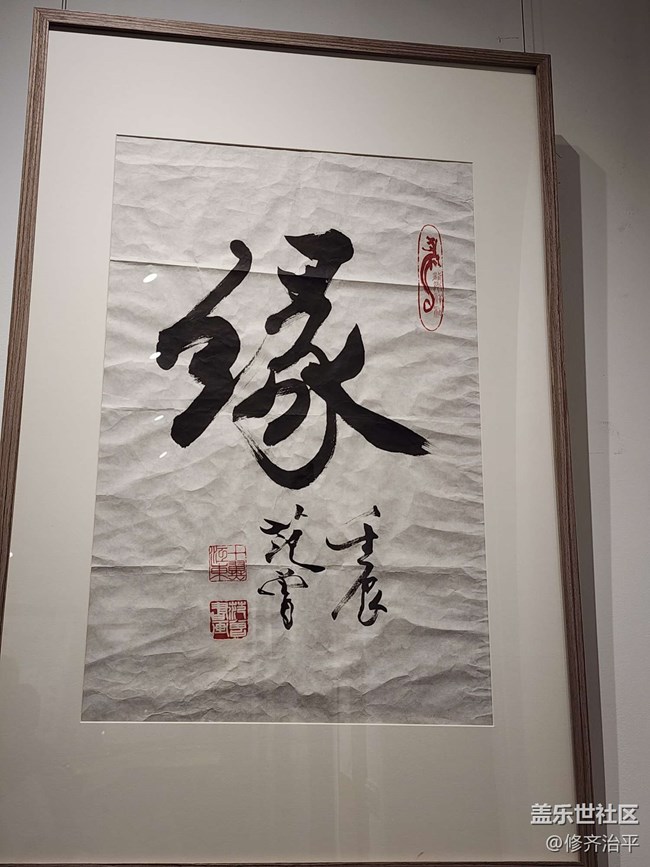 缘
壬辰
范曾
盖乐世社区
@修齐治平